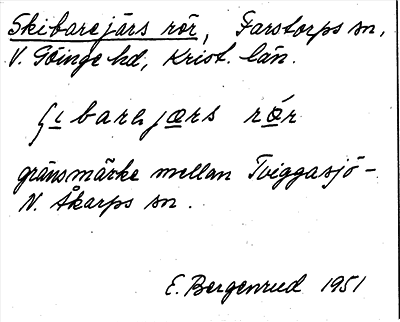 Skibarejärs rör, Farstorps sn,
V. Göinge hd, Krist. län.
ʃi barejærs rör
gränsmärke mellan Tviggasjö-
N. Åkarps sn.
E. Bergenrud 1951